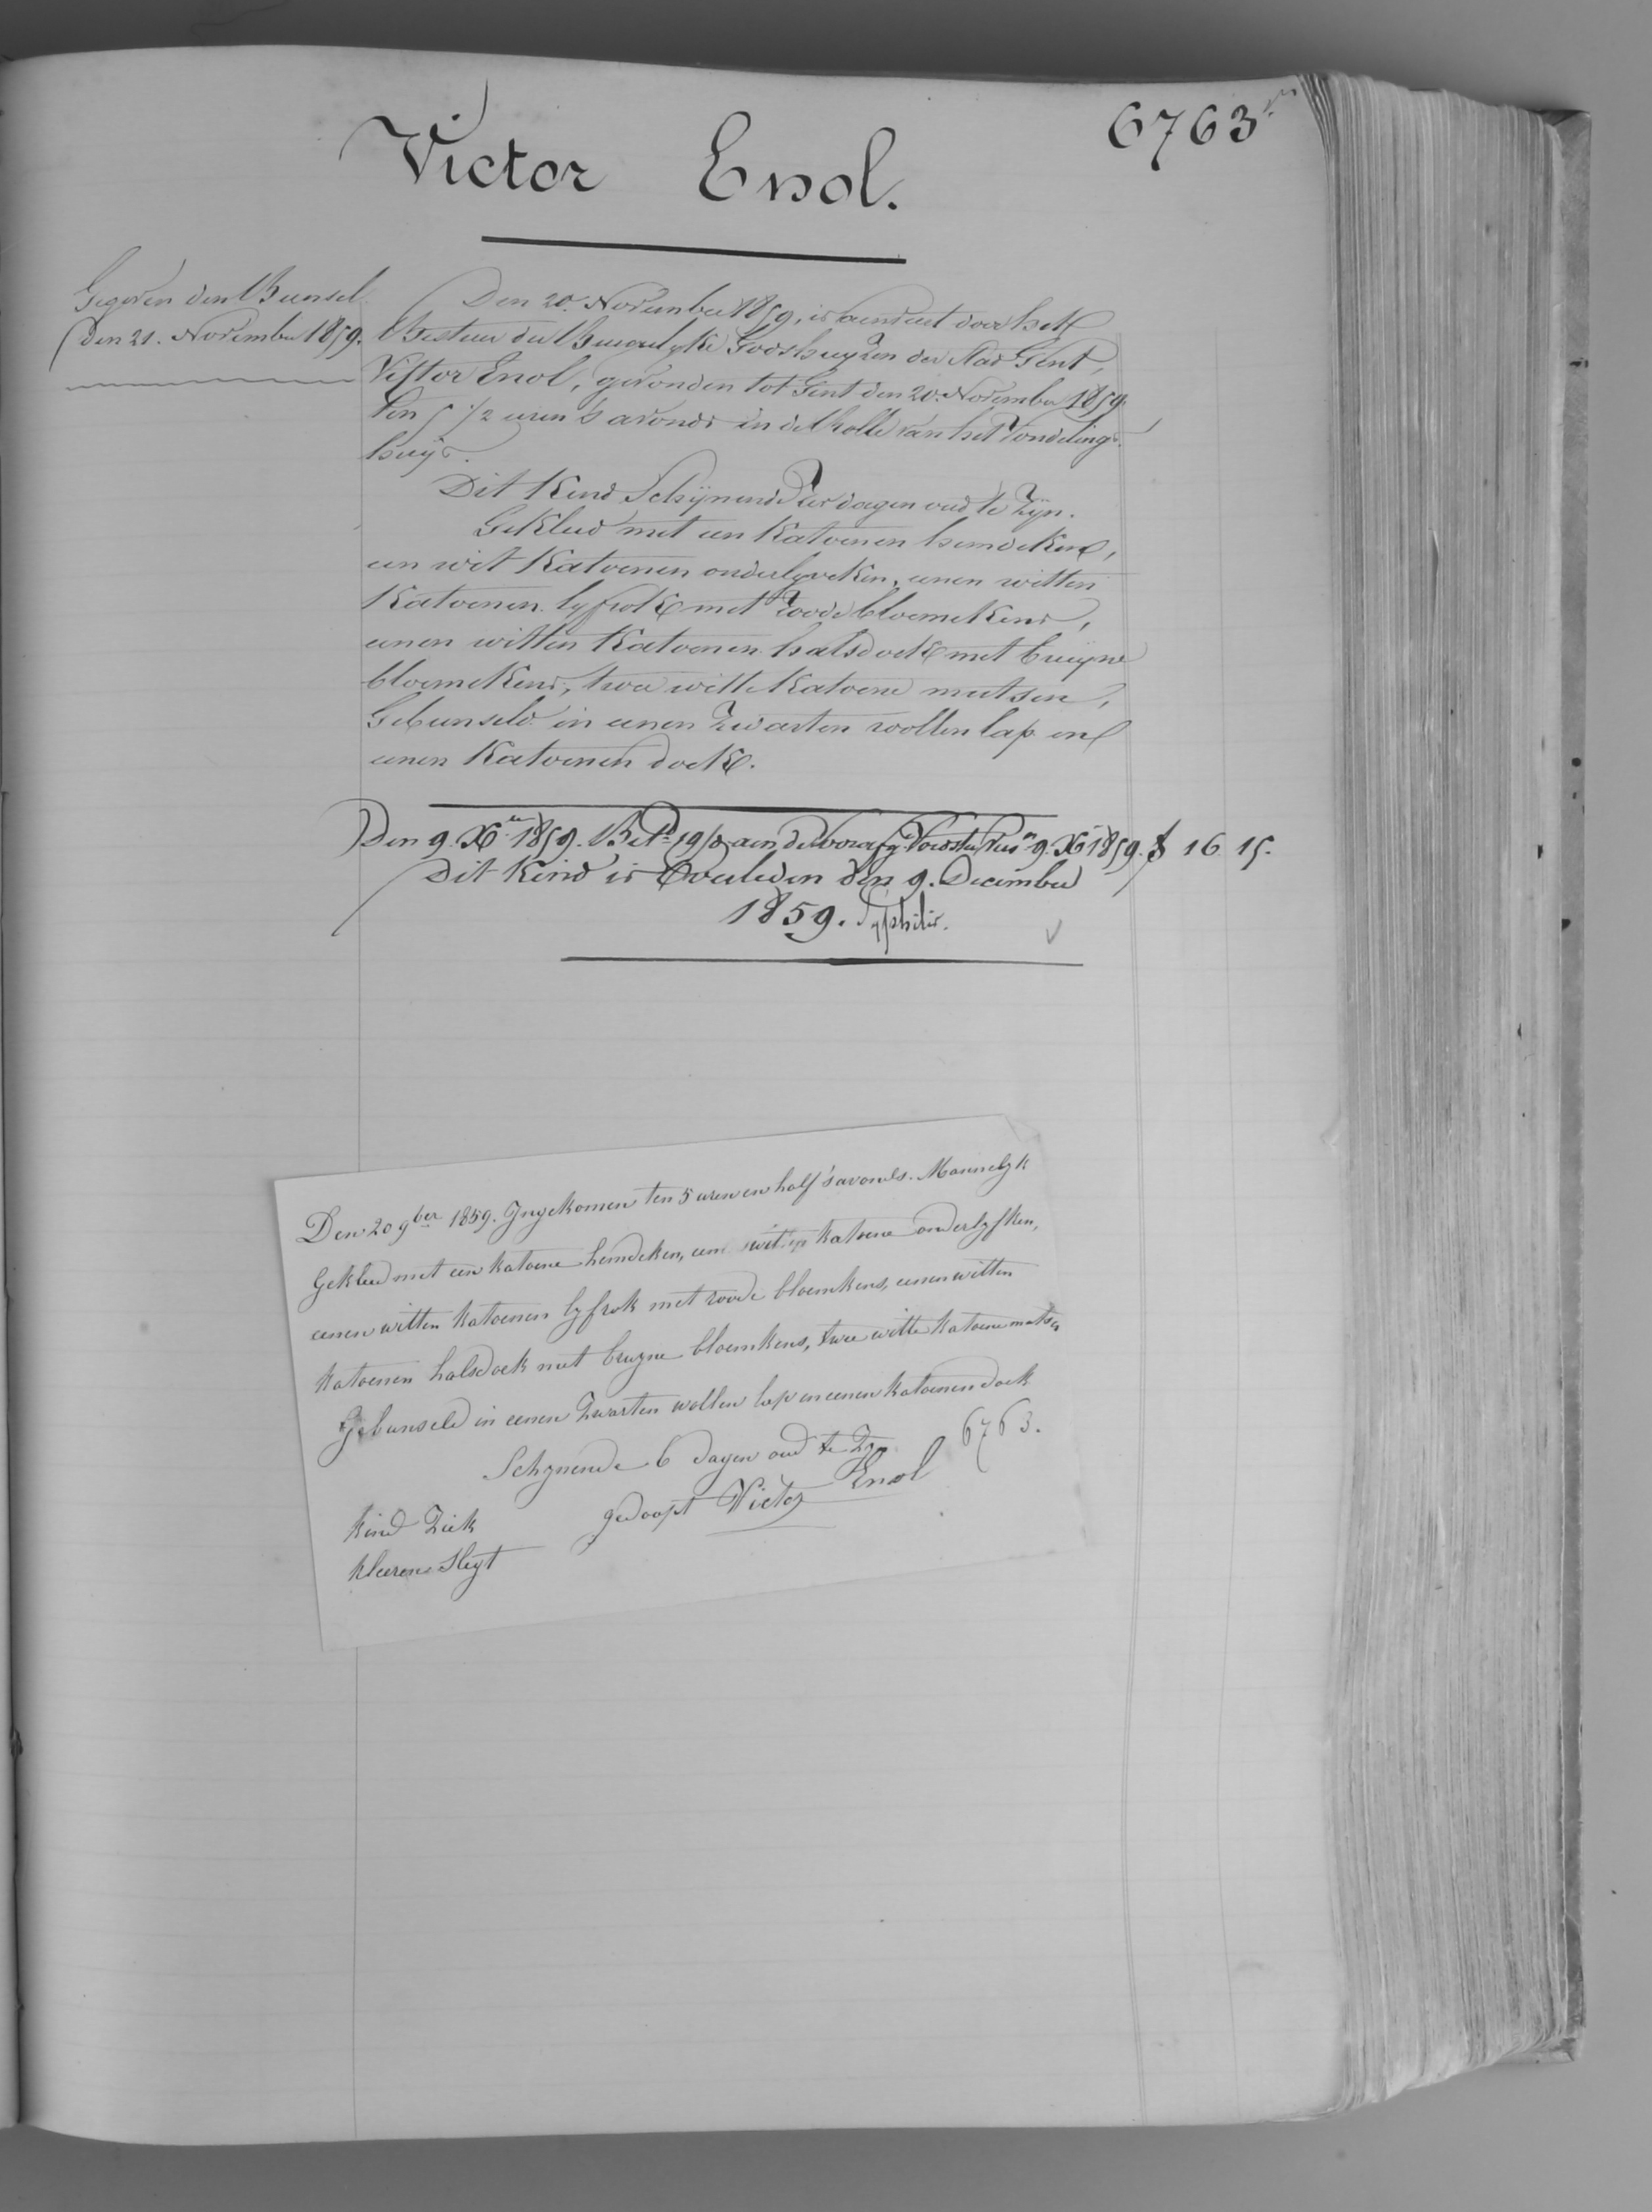 6763
Victor Enol.
Gegeven den Bunsel
den 21. November 1859.
Den 20. November 1859, is aenveert door het
Bestuer der Burgerlyke Godshuyzen der Stad Gent,
Victor Enol, gevonden tot Gent den 20. November 1859
ten 5 1/2 uren 's avonds in de Rolle van het Vondeling-
huys.
Dit Kind Schijnende Zes dagen oud te Zijn.
Gekleed met een Katoenen hemdeken,
een wit Katoenen onderlyveken, eenen witten
Katoenen lyfrok met Roode bloemekens,
eenen witten Katoenen halsdoek met bruyne
bloemekens, twee witte Katoene mutsen,
Gebunseld in eenen Zwarten wollen lap en
eenen Katoenen doek.
Den 9. Xber 1859. Betd 19/ aen de Voedster 9. Xber 1859. 16 15.
Dit Kind is Overleden den 9. December
1859. Syphilis.
Den 20 9ber 1859. Ingekomen ten 5 uren en half 's avonds. Mannelyk
Gekleed met een katoene hemdeken, een wit katoene onderlyfken,
eenen witten katoenen lyfrok met roode bloemkens, eenen witten
katoenen halsdoek met bruyne bloemkens, twee witte katoene mutsen
Gebunseld in eenen Zwarten wollen lap en eenen katoenen doek
Schynende 6 dagen oud te Zyn
6763.
gedoopt Victor Enol
kind Ziek
kleeren Slegt